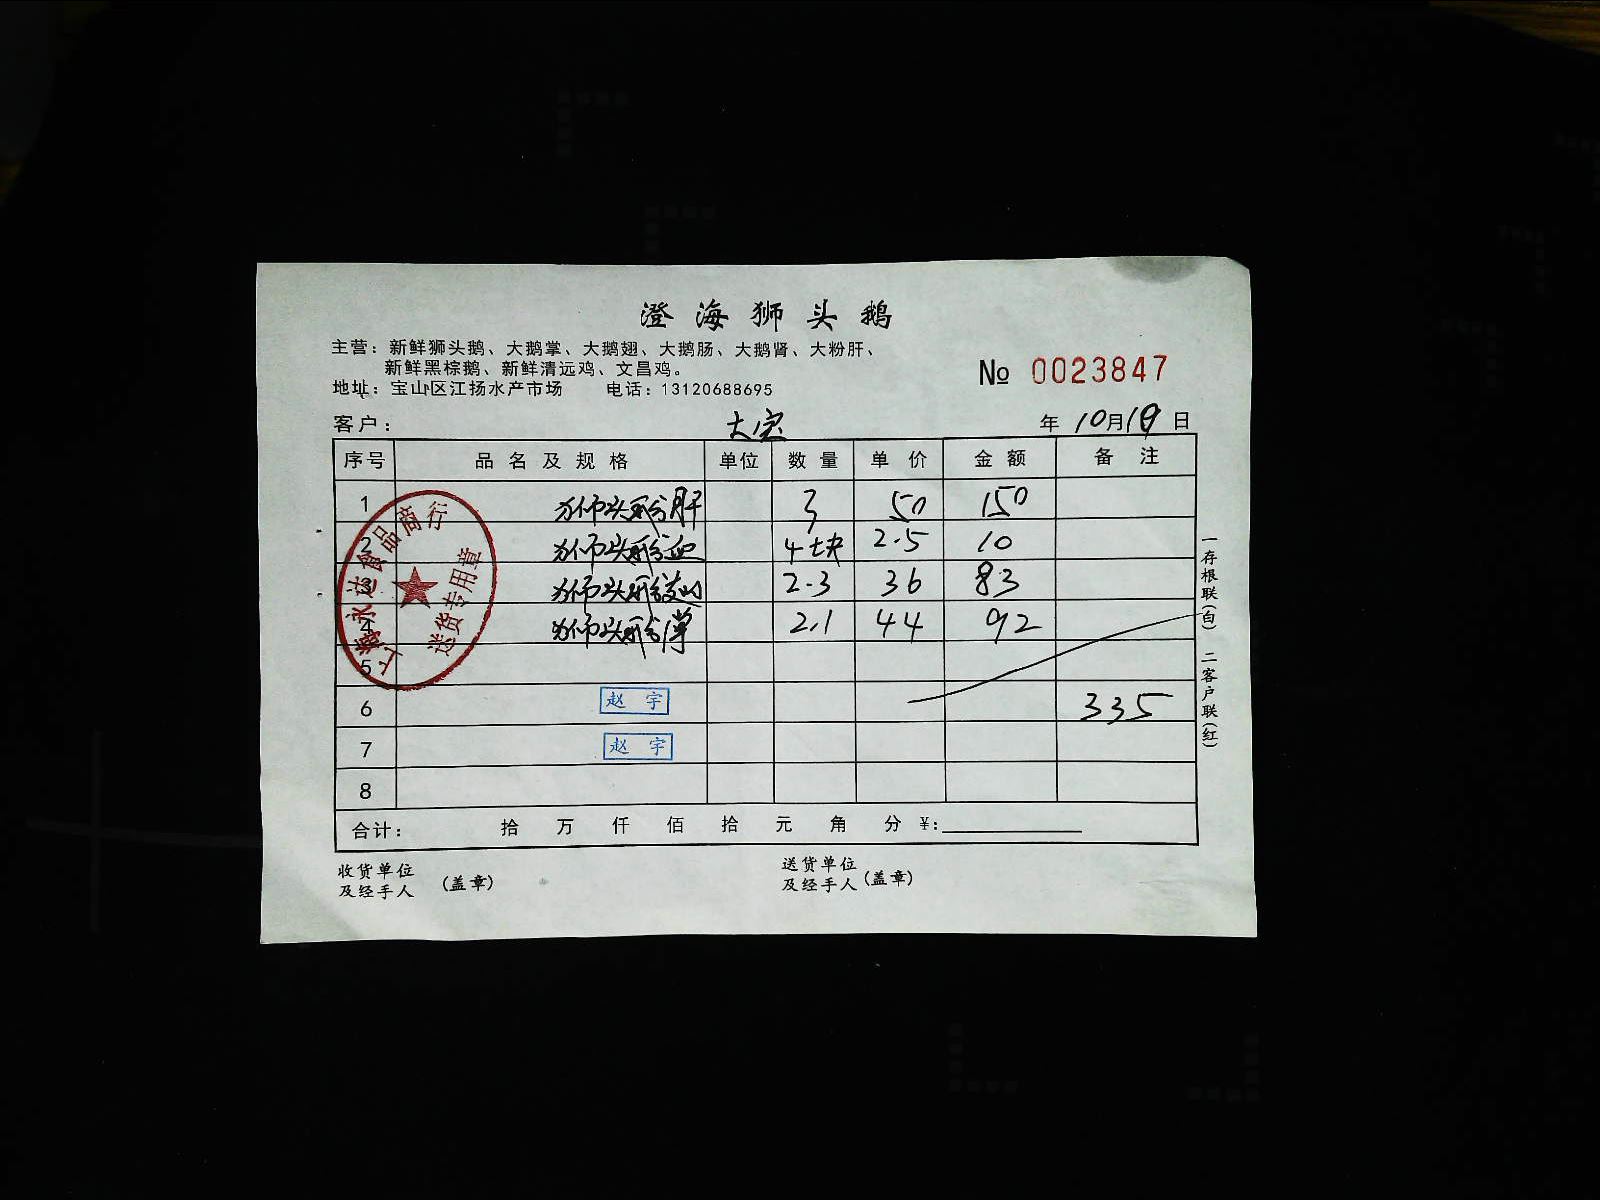 澄海狮头鹅
主营：新鲜狮头鹅、大鹅掌、大鹅翅、大鹅肠、大鹅肾、大粉肝、
新鲜黑棕鹅、新鲜清远鸡、文昌鸡。
№ 0023847
地址：宝山区江扬水产市场 电话：13120688695
客户： 年 10月19日
序号 品名及规格 单位 数量 单价 金额 备注
1 狮头鹅肝 3 50 150
2 狮头鹅 4块 2.5 10
3 狮头鹅 2.3 36 83
4 狮头鹅 2.1 44 92
5
6 赵宇 335
7 赵宇
8
合计： 拾 万 仟 佰 拾 元 角 分 ¥:
收货单位
及经手人 (盖章)
送货单位
及经手人 (盖章)
一存根联(白) 二客户联(红)
上海永达食品商行
送货专用章